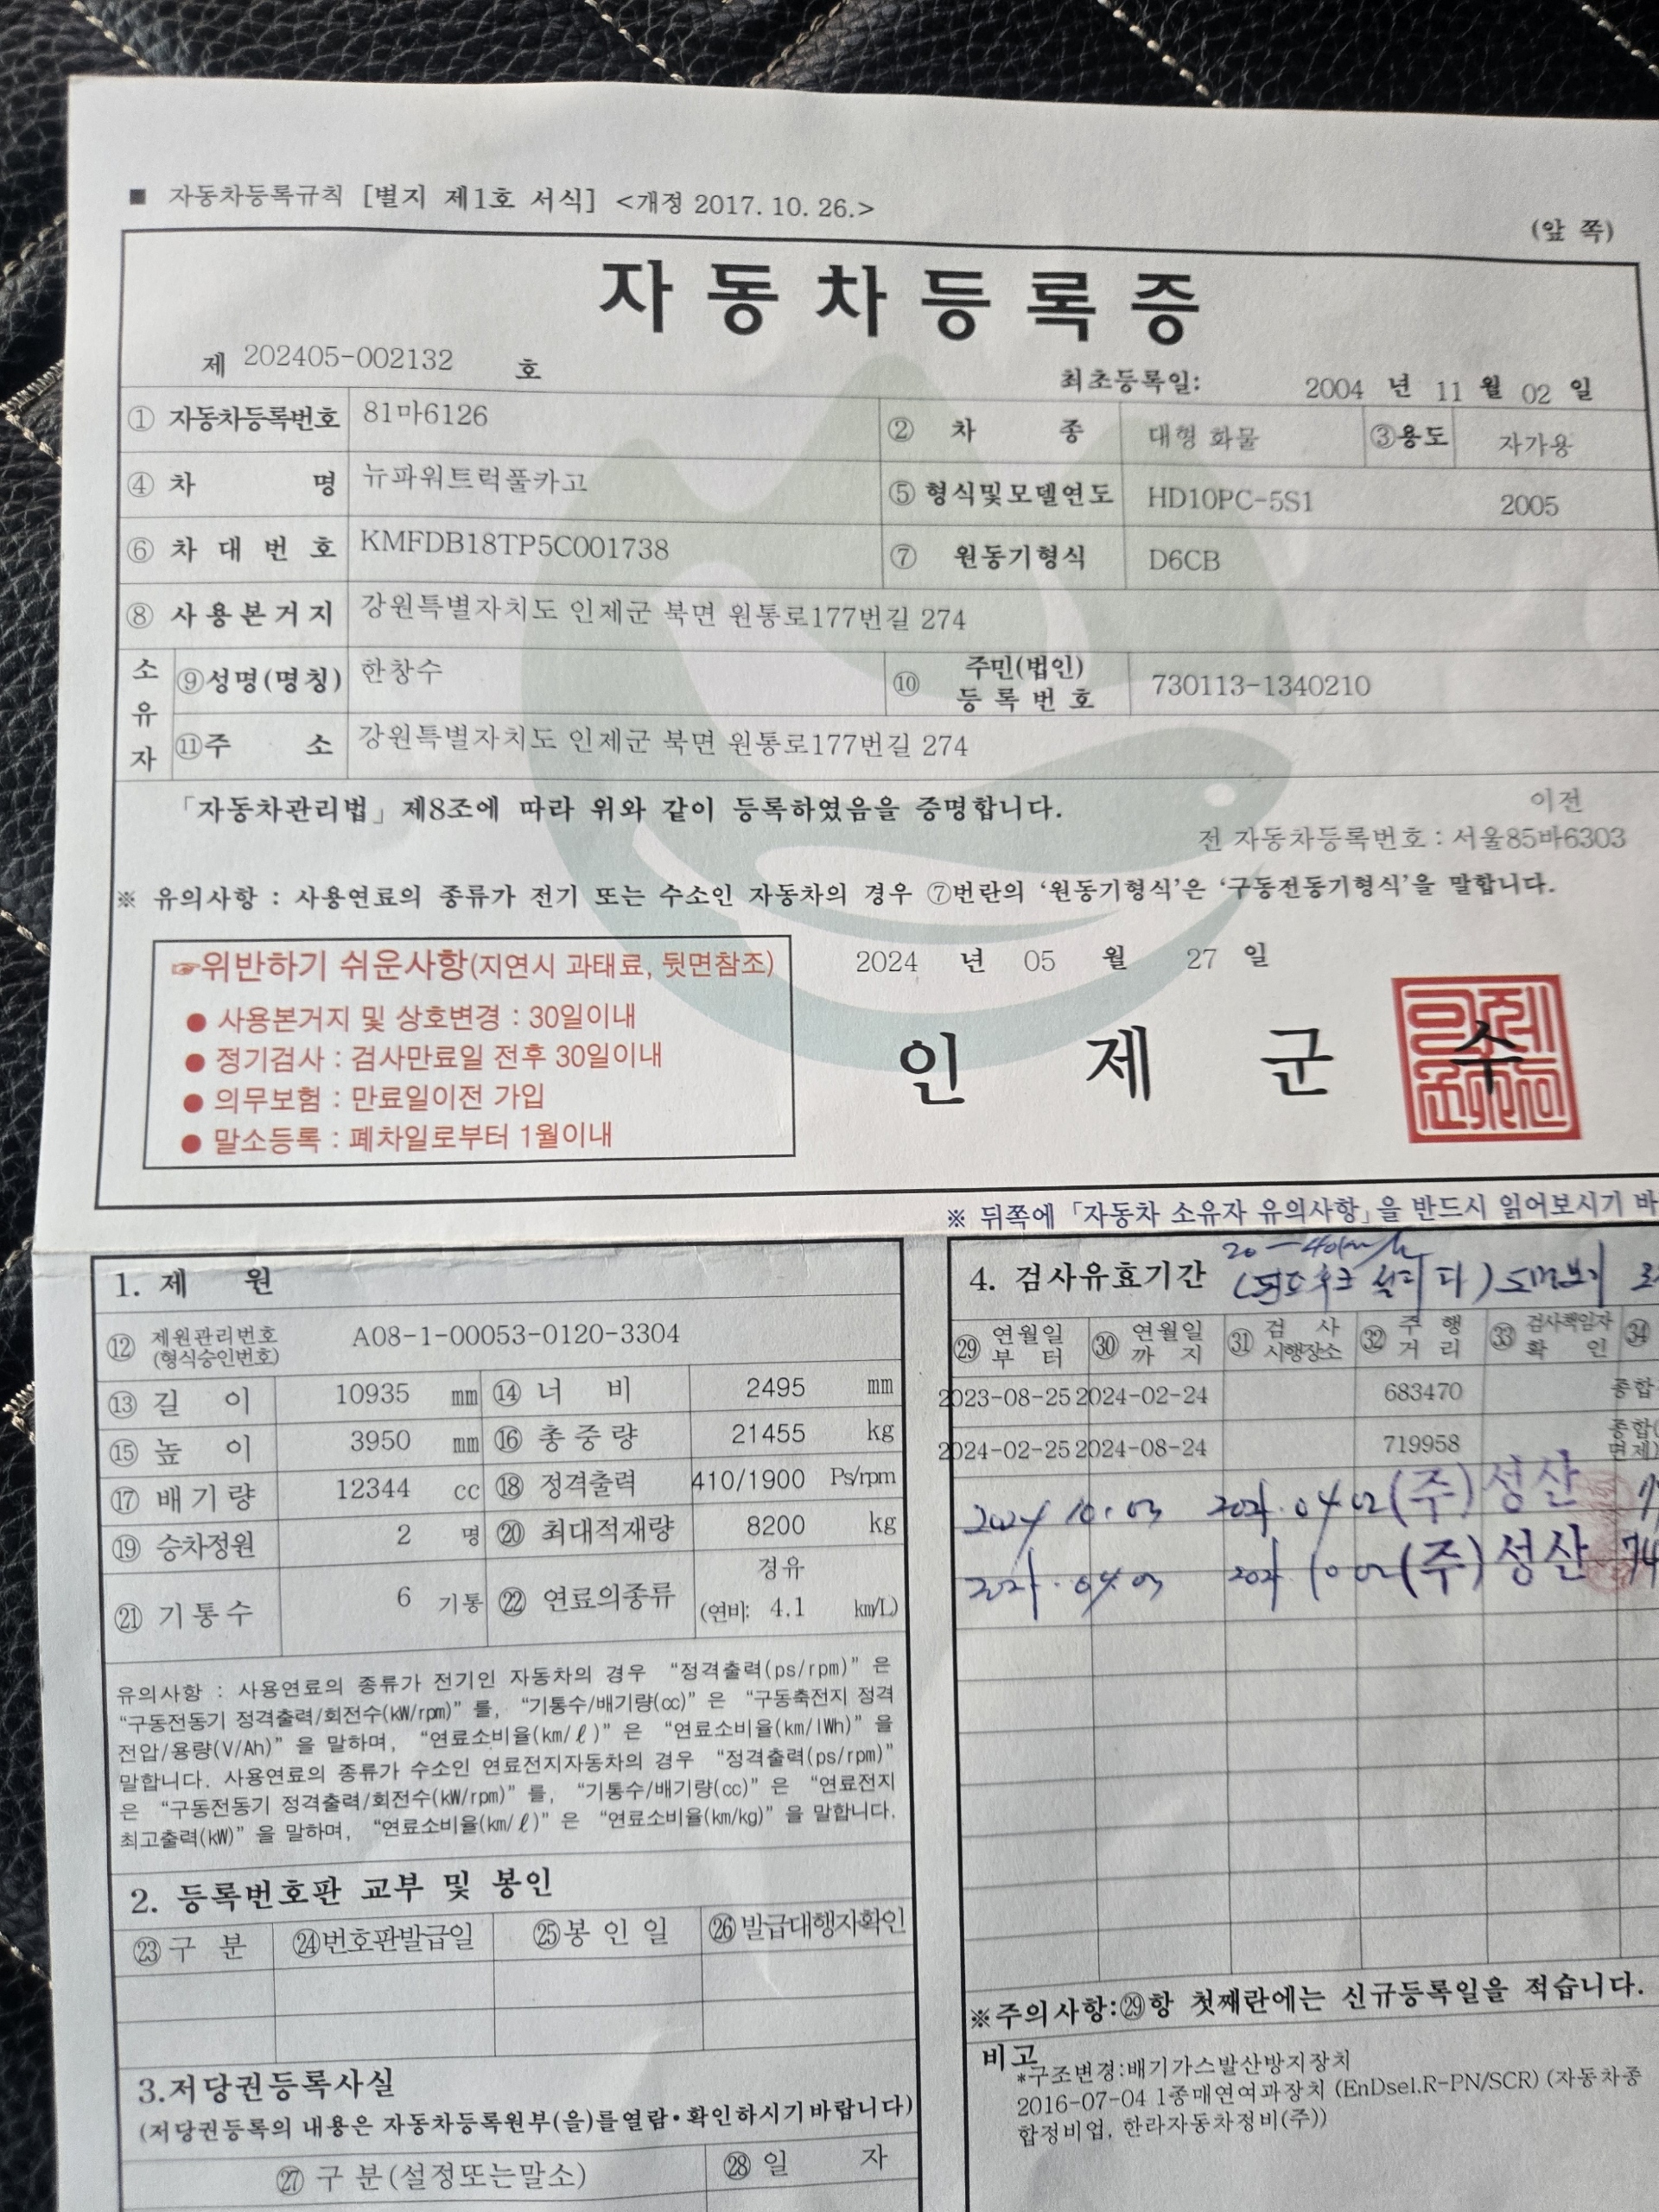 ■ 자동차등록규칙 [별지 제1호 서식] <개정 2017. 10. 26.>
(앞 쪽)
자동차등록증
제 202405-002132 호
최초등록일: 2004 년 11 월 02 일
① 자동차등록번호 81마6126 ② 차 종 대형 화물 ③용도 자가용
④ 차 명 뉴파워트럭풀카고 ⑤ 형식및모델연도 HD10PC-5S1 2005
⑥ 차 대 번 호 KMFDB18TP5C001738 ⑦ 원동기형식 D6CB
⑧ 사용본거지 강원특별자치도 인제군 북면 원통로177번길 274
소유자 ⑨성명(명칭) 한창수 ⑩ 주민(법인)등록번호 730113-1340210
⑪주 소 강원특별자치도 인제군 북면 원통로177번길 274
「자동차관리법」제8조에 따라 위와 같이 등록하였음을 증명합니다.
이전
전 자동차등록번호 : 서울85바6303
※ 유의사항 : 사용연료의 종류가 전기 또는 수소인 자동차의 경우 ⑦번란의 ‘원동기형식’은 ‘구동전동기형식’을 말합니다.
☞위반하기 쉬운사항(지연시 과태료, 뒷면참조)
● 사용본거지 및 상호변경 : 30일이내
● 정기검사 : 검사만료일 전후 30일이내
● 의무보험 : 만료일이전 가입
● 말소등록 : 폐차일로부터 1월이내
2024 년 05 월 27 일
인 제 군 수
※ 뒤쪽에 「자동차 소유자 유의사항」을 반드시 읽어보시기 바
1. 제 원
⑫ 제원관리번호 (형식승인번호) A08-1-00053-0120-3304
⑬ 길 이 10935 mm ⑭ 너 비 2495 mm
⑮ 높 이 3950 mm ⑯ 총 중 량 21455 kg
⑰ 배 기 량 12344 cc ⑱ 정격출력 410/1900 Ps/rpm
⑲ 승차정원 2 명 ⑳ 최대적재량 8200 kg
㉑ 기 통 수 6 기통 ㉒ 연료의종류 경유 (연비: 4.1 km/L)
유의사항 : 사용연료의 종류가 전기인 자동차의 경우 “정격출력(ps/rpm)” 은
“구동전동기 정격출력/회전수(kW/rpm)” 를, “기통수/배기량(cc)” 은 “구동축전지 정격
전압/용량(V/Ah)” 을 말하며, “연료소비율(km/ℓ)” 은 “연료소비율(km/lWh)” 을
말합니다. 사용연료의 종류가 수소인 연료전지자동차의 경우 “정격출력(ps/rpm)”
은 “구동전동기 정격출력/회전수(kW/rpm)” 를, “기통수/배기량(cc)” 은 “연료전지
최고출력(kW)” 을 말하며, “연료소비율(km/ℓ)” 은 “연료소비율(km/kg)” 을 말합니다.
2. 등록번호판 교부 및 봉인
㉓구 분 ㉔번호판발급일 ㉕봉 인 일 ㉖발급대행자확인
3.저당권등록사실
(저당권등록의 내용은 자동차등록원부(을)를열람•확인하시기바랍니다)
㉗ 구 분(설정또는말소) ㉘ 일 자
4. 검사유효기간
㉙ 연월일부터 ㉚ 연월일까지 ㉛ 검사시행장소 ㉜ 주행거리 ㉝ 검사책임자확인 ㉞
2023-08-25 2024-02-24 683470 종합
2024-02-25 2024-08-24 719958 종합(면제)
2024 10. 03 04 02 (주)성산
04 03 10 02 (주)성산 74
※주의사항:㉙항 첫째란에는 신규등록일을 적습니다.
비고
*구조변경:배기가스발산방지장치
2016-07-04 1종매연여과장치 (EnDsel.R-PN/SCR) (자동차종
합정비업, 한라자동차정비(주))